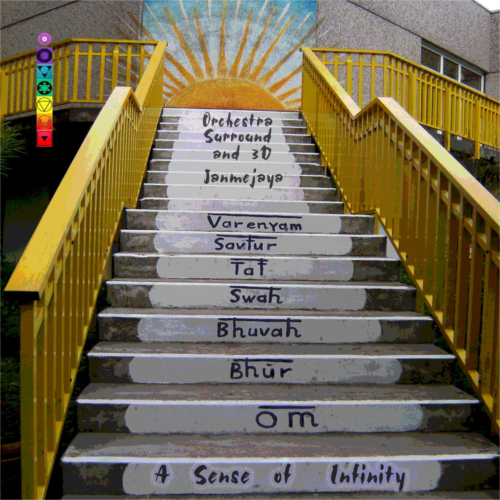 Orchestra
Surround
and 3D
Janmejaya
Varenyam
Savtur
Tat
Swah
Bhuvah
Bhūr
Om
A Sense of Infinity